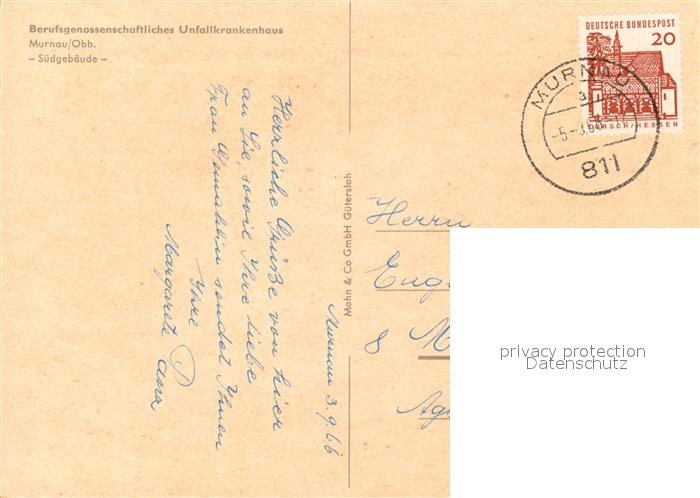 Berufsgenossenschaftliches Unfallkrankenhaus
Murnau/Obb.
– Südgebäude –
DEUTSCHE BUNDESPOST
20
LORSCH/HESSEN
MURNAU
a
811
Murnau 3.9.66
Herrliche Grüße von hier
an Sie sowie Ihre liebe
Frau Gemahlin sendet Ihnen
Ihre
Margarete
Mohn & Co GmbH Gütersloh
Herrn
8 M
privacy protection
Datenschutz